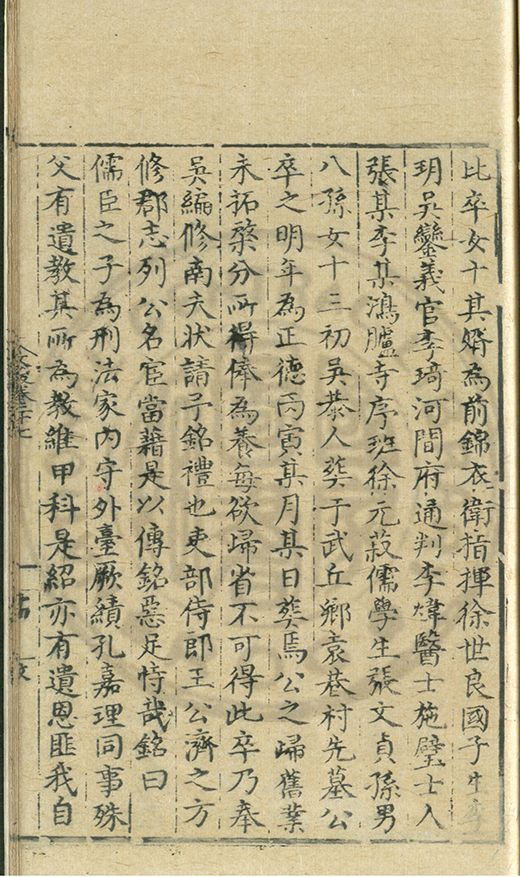 比卒女十其婿為前錦衣衛指揮徐世良國子生李
玥吳鑾義官李琦河間府通判李煒醫士施璧士人
張某李某鴻臚寺序班徐元菽儒學生張文貞孫男
八孫女十三初吳恭人葬于武丘鄉袁巷村先墓公
卒之明年為正德丙寅某月某日葬焉公之歸舊業
未拓槩分所得俸為養每欲歸省不可得此卒乃奉
吳編修南夫狀請予銘禮也吏部侍郎王公濟之方
修郡志列公名宦當藉是以傳銘惡足恃哉銘曰
儒臣之子為刑法家內守外臺厥績孔嘉理同事殊
父有遺教其所為教維甲科是紹亦有遺恩匪我自